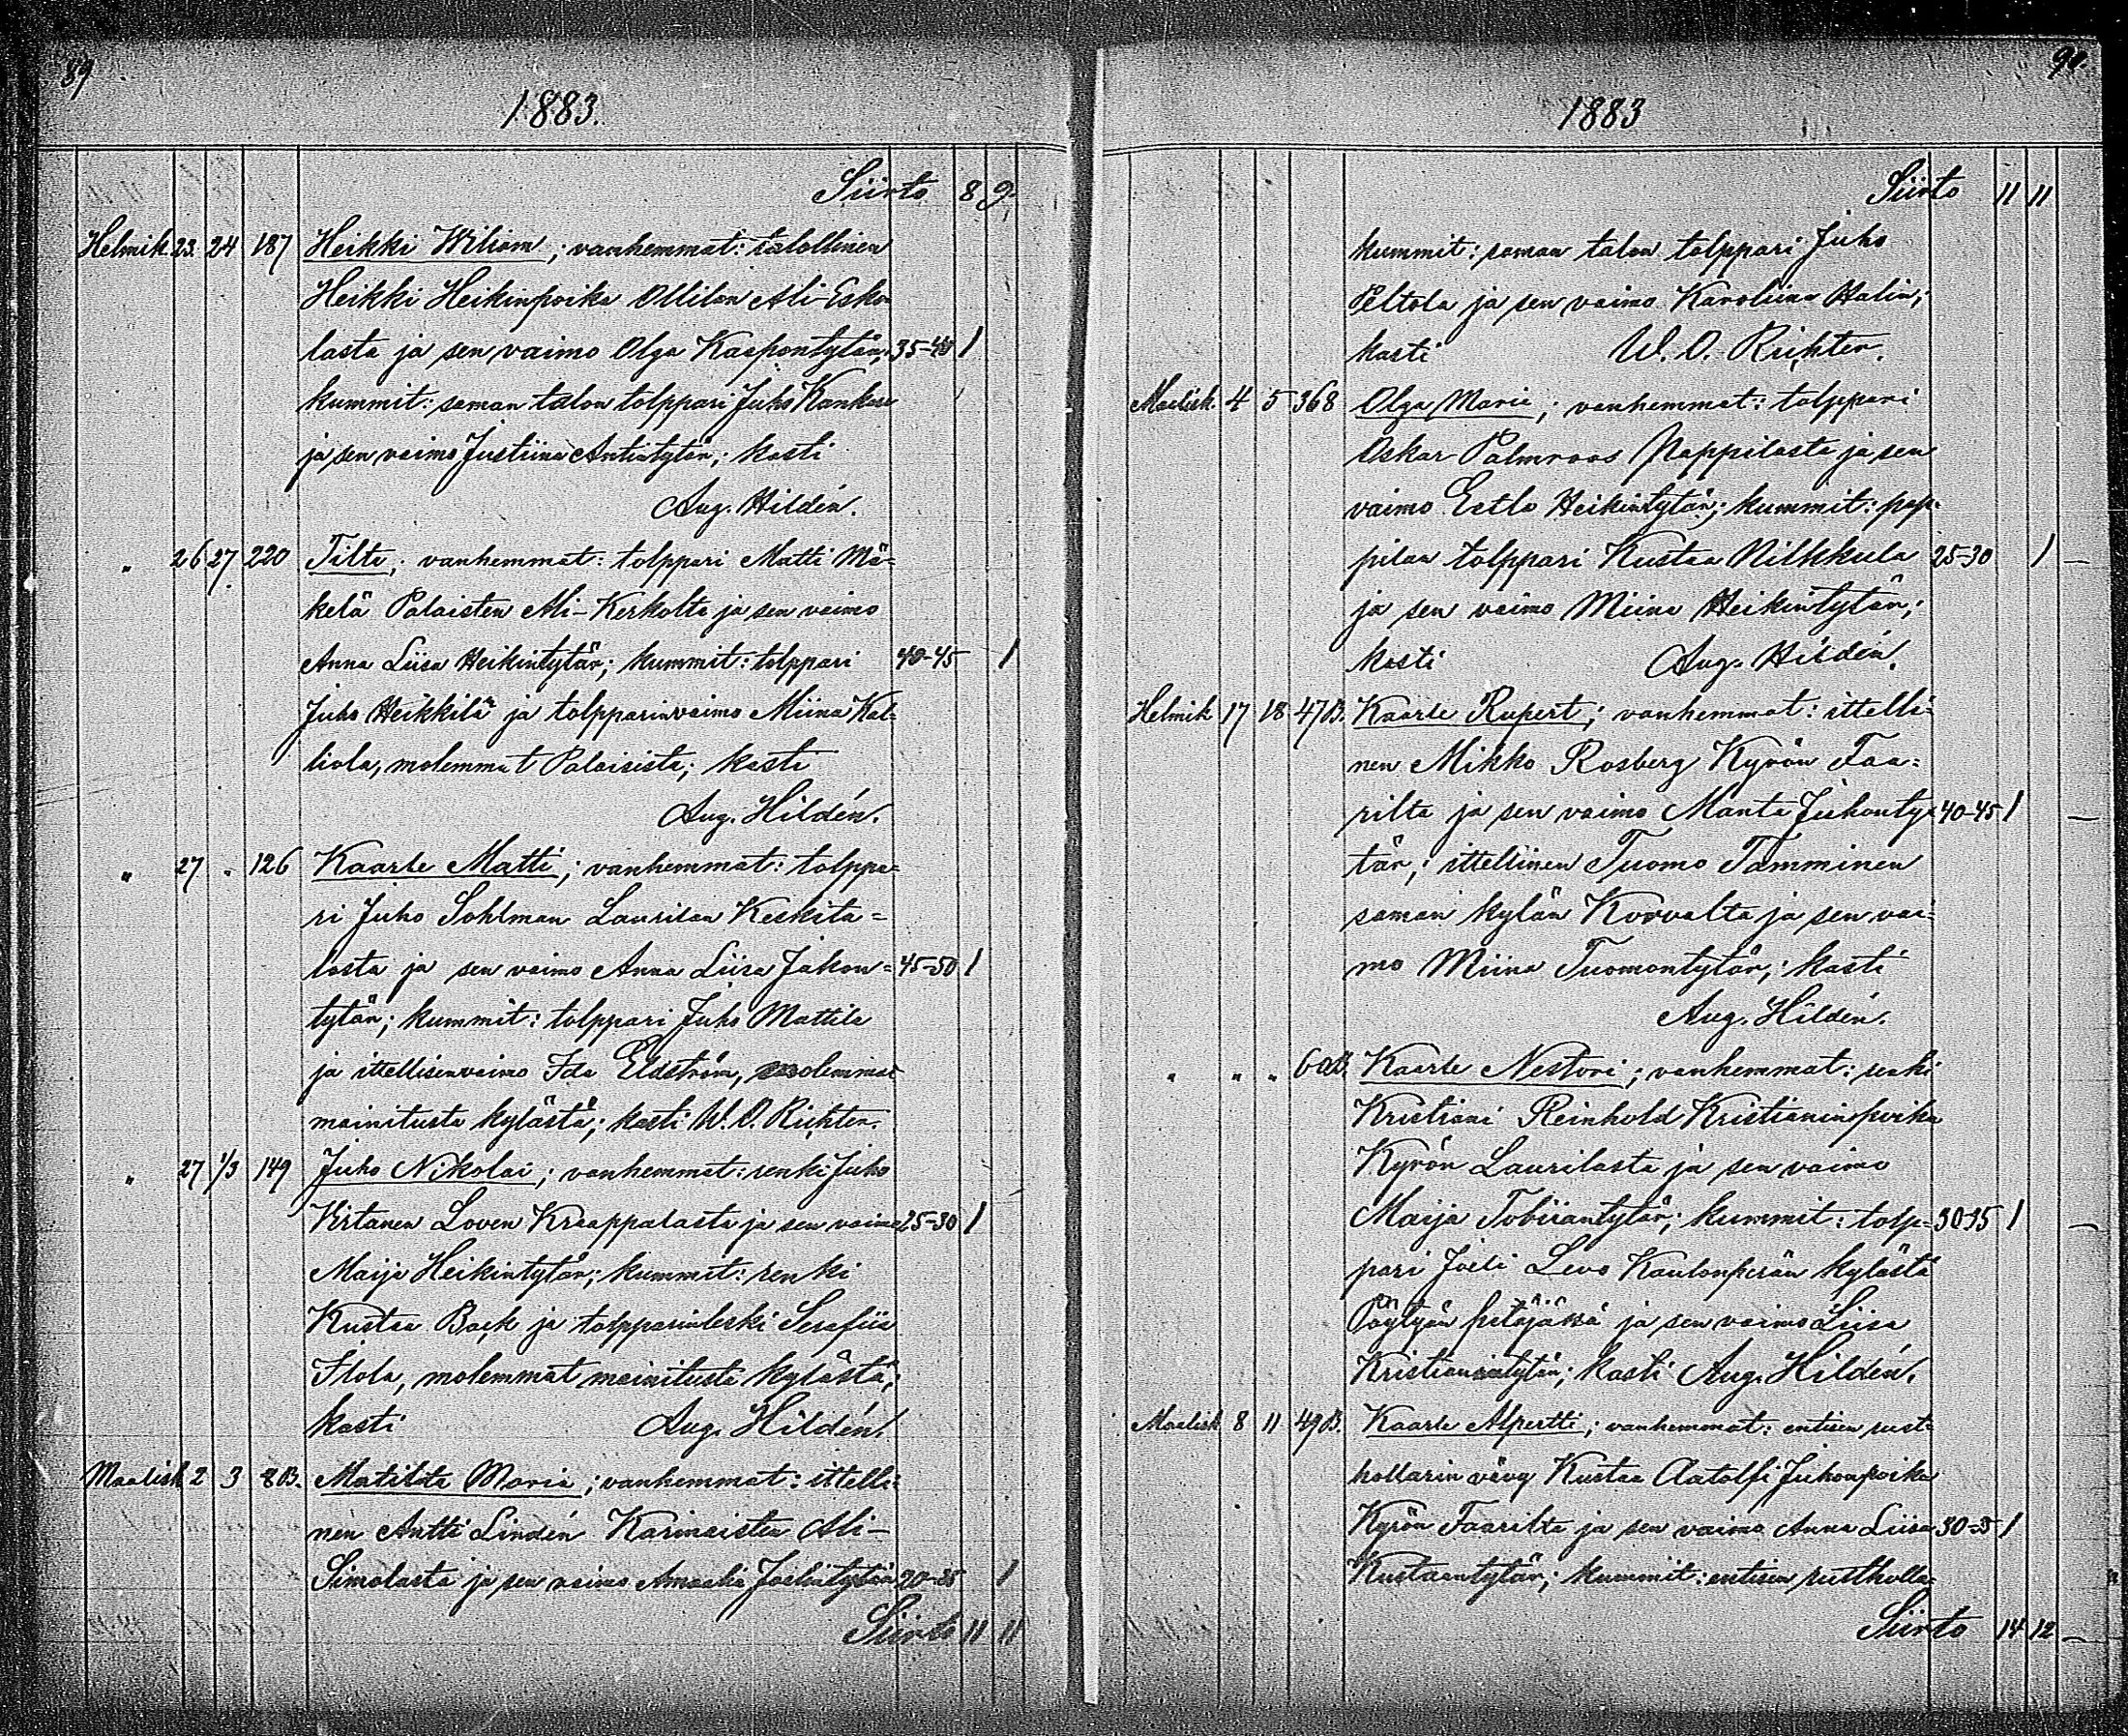 89
1883.
Siirto 8 9
Helmik. 23. 24 187 Heikki Wiliam; vanhemmat: talollinen
Heikki Heikinpoika Ollilan Ali-Esko
lasta ja sen vaimo Olga Kaapontytär; 35-40 1
kummit: saman talon tolppari Juho Kankare
ja sen vaimo Justiina Antintytär; kasti
Aug. Hildén.
" 26 27 220 Tilta; vanhemmat: tolppari Matti Mä=
kelä Palaisten Ali-Kerkolta ja sen vaimo
Anna Liisa Heikintytär; kummit: tolppari 40-45 1
Juho Heikkilä ja tolpparinvaimo Miina Kal=
liola, molemmat Palaisista; kasti
Aug. Hildén.
" 27 " 126 Kaarle Matti; vanhemmat: tolppa=
ri Juho Sohlman Laurilan Keskita=
losta ja sen vaimo Anna Liisa Jakon= 45-50 1
tytär; kummit: tolppari Juho Mattila
ja ittellisenvaimo Ida Eldström, molemmat
mainitusta kylästä; kasti W. O. Richter.
" 27 1/3 149 Juho Nikolai; vanhemmat: renki Juho
Virtanen Loven Kraappalasta ja sen vaimo 25-30 1
Maija Heikintytär; kummit: renki
Kustaa Back ja tolpparinleski Serafiia
Ilola, molemmat mainitusta kylästä;
kasti Aug. Hildén.
Maalisk 2 3 8B. Matilta Maria; vanhemmat: ittelli=
nen Antti Lindén Karinaisten Ali-
Simolasta ja sen vaimo Amaalia Joelintytär 20-25 1
Siirto 11 11
90.
1883
Siirto 11 11
kummit: saman talon tolppari Juho
Peltola ja sen vaimo Karoliina Halin;
kasti W. O. Richter.
Maalisk. 4 5 368 Olga Maria; vanhemmat: tolppari
Oskar Palmroos Pappilasta ja sen
vaimo Eetla Heikintytär; kummit: pap=
pilan tolppari Kustaa Nilkkula 25-30 1 —
ja sen vaimo Miina Heikintytär;
kasti Aug. Hildén.
Helmik 17 18 47B. Kaarle Rupert; vanhemmat: ittelli=
nen Mikko Rosberg Kyrön Faa=
rilta ja sen vaimo Manta Juhonty= 40-45 1 —
tär; ittellinen Tuomo Tamminen
saman kylän Korvalta ja sen vai=
mo Miina Tuomontytär; kasti
Aug. Hildén.
" " " 60B. Kaarle Nestori; vanhemmat: renki
Kristiani Reinhold Kristianinpoika
Kyrön Laurilasta ja sen vaimo
Maija Tobiiantytär; kummit: tolp= 30-35 1 —
pari Joeli Levo Kaulanperän kylästä
Pöytyän pitäjässä ja sen vaimo Liisa
Kristianintytär; kasti Aug. Hildén.
Maalisk 8 11 49B. Kaarle Alpertti; vanhemmat: entisen rust=
hollarin vävy Kustaa Aatolfi Juhonpoika
Kyrön Faarilta ja sen vaimo Anna Liisa 30-5 1
Kustaantytär; kummit: entisen rustholla=
Siirto 14 12 —